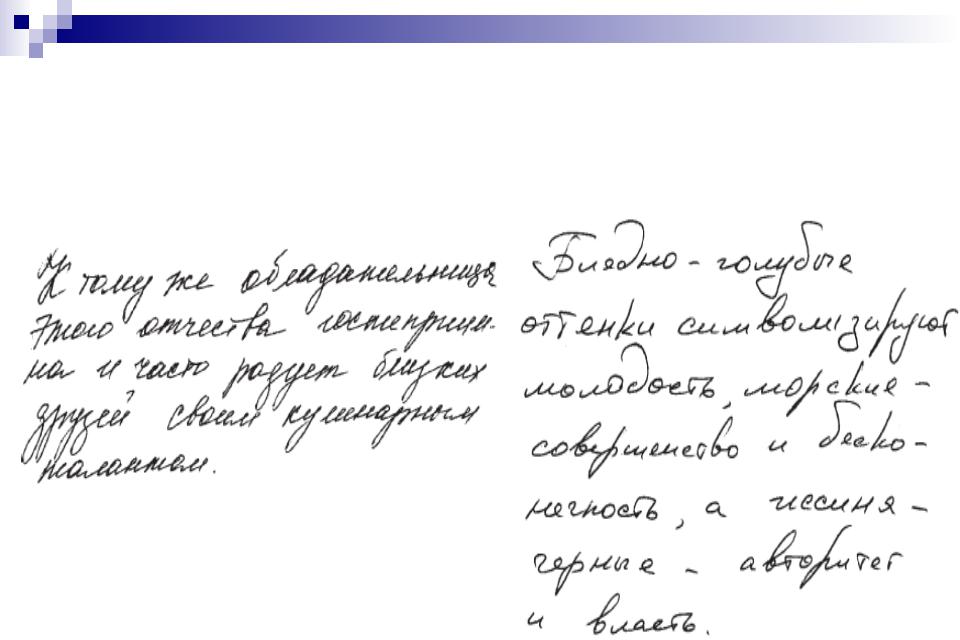 К тому же обладательница
этого отчества гостеприим-
на и часто радует близких
друзей своим кулинарным
талантом.
Бледно-голубые
оттенки символизируют
молодость, морские -
совершенство и беско-
нечность, а иссиня-
черные - авторитет
и власть.